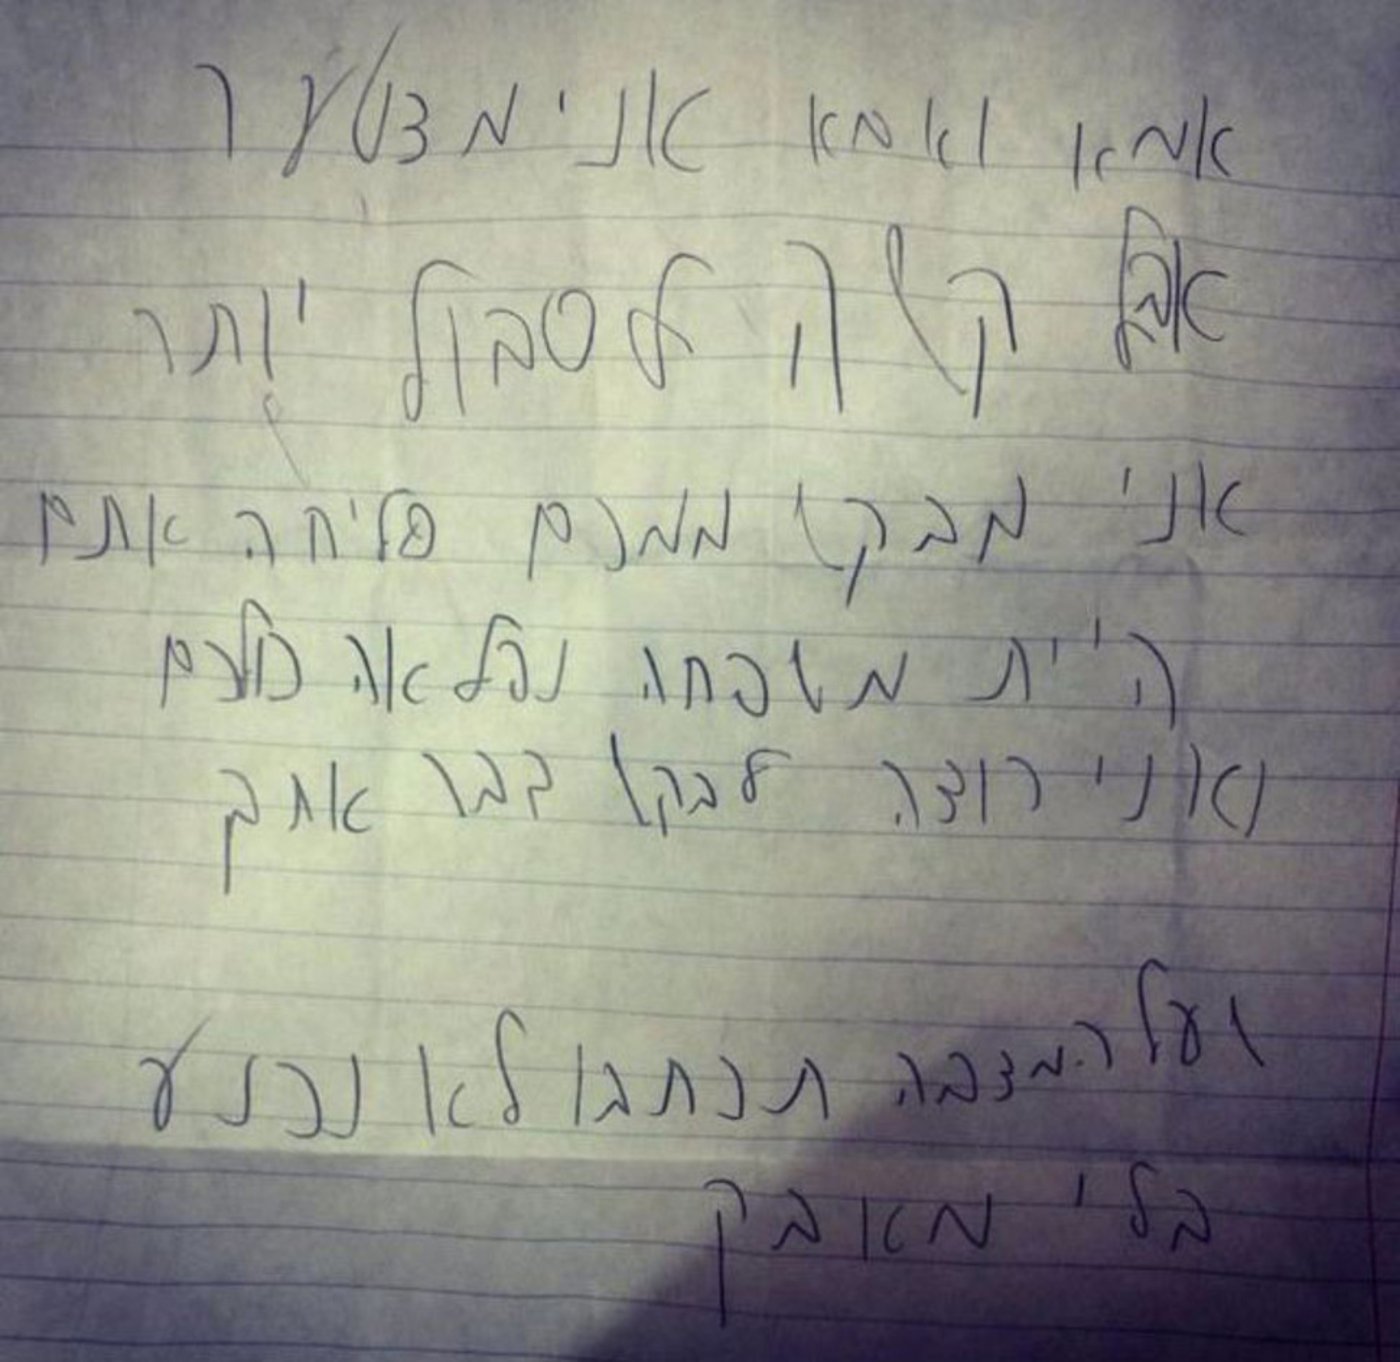 אמא ואמא אני מצטער
אבל קשה לסבול יותר
אני מבקש ממכם סליחה אתם
היית משפחה נפלאה כולכם
ואני רוצה לבקש דבר אחד
ועל המצבה תכתבו לא נכנע
בלי מאבק